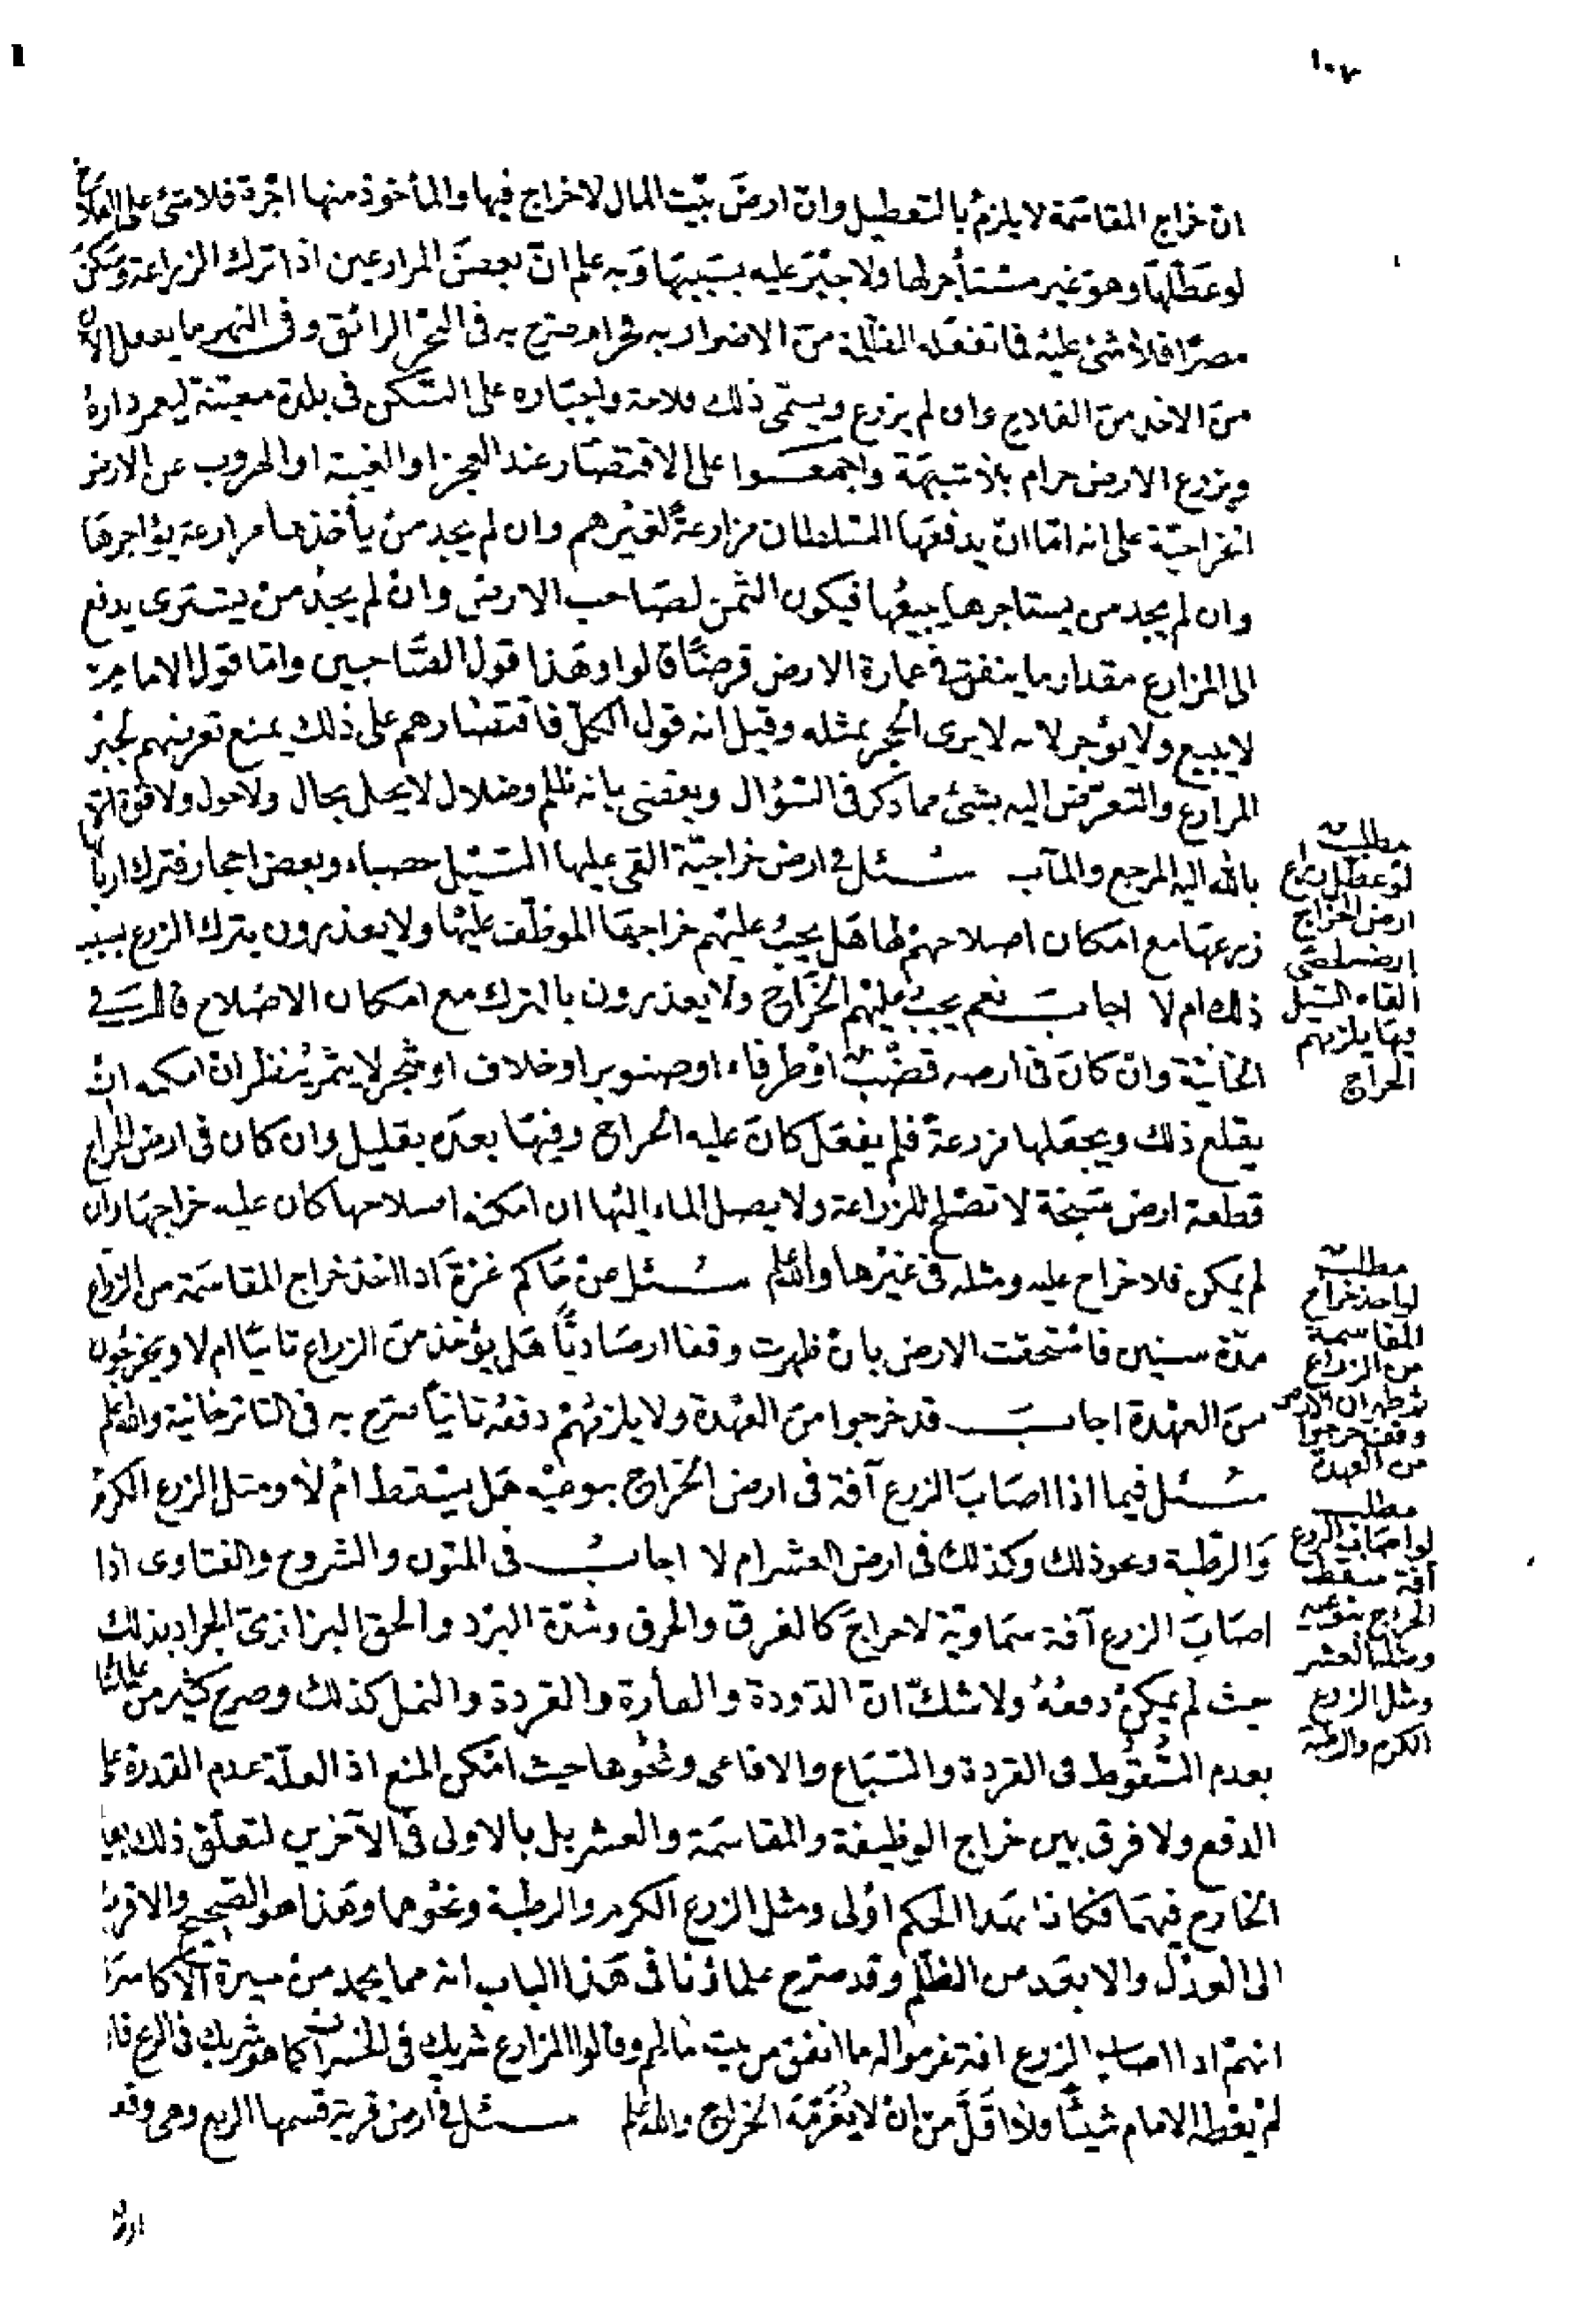 ١٠٧
ان خراج المقاسمة لا يلزم بالتعطيل وان ارض بيت المال لا خراج فيها والمأخوذ منها اجرة فلا شئ على الفلاح
لو عطلها وهو غير مستأجر لها ولا جبر عليه بسببها وبه علم ان بعض المزارعين اذا ترك الزراعة وسكن
مصرا فلا شئ عليه فما تفعله الظلمة من الاضرار به حرام صرح به في البحر الرائق وفي النهر ما يفعل الآن
من الاخذ من الفلاح وان لم يزرع ويسمى ذلك فلاحة واجباره على السكن في بلدة معينة ليعمر داره
ويزرع الارض حرام بلا شبهة واجمعوا على الاقتصار عند العجز او الغيبة او الهروب عن الارض
الخراجية على انه اما ان يدفعها السلطان مزارعة لغيرهم وان لم يجد من يأخذها مزارعة يؤاجرها
وان لم يجد من يستاجرها يبيعها فيكون الثمن لصاحب الارض وان لم يجد من يشترى يدفع
الى المزارع مقدار ما ينفق في عمارة الارض قرضا قالوا وهذا قول الصاحبين واما قول الامام
لا يبيع ولا يؤجر لانه لا يرى الحجر بمثله وقيل انه قول الكل فاقتصارهم على ذلك يمنع تعرضهم لجبر
المزارع والتعرض اليه بشئ مما ذكر في السؤال ويقضى بانه ظلم وضلال لا يحل بحال ولا حول ولا قوة الا
بالله اليه المرجع والمآب سئل في ارض خراجية القى عليها السيل حصباء وبعض احجار فترك اربابها
زرعها مع امكان اصلاحهم لها هل يجب عليهم خراجها الموظف عليها ولا يعذرون بترك الزرع بسبب
ذلك ام لا اجاب نعم يجب عليهم الخراج ولا يعذرون بالترك مع امكان الاصلاح قال في
الخانية وان كان في ارضه قصب او طرفاء او صنوبر او خلاف او شجر لا يثمر ينظر ان امكنه ان
يقلع ذلك ويجعلها مزرعة فلم يفعل كان عليه الخراج وفيها بعده بقليل وان كان في ارض الخراج
قطعة ارض سبخة لا تصلح للزراعة ولا يصل الماء اليها ان امكنه اصلاحها كان عليه خراجها وان
لم يمكن فلا خراج عليه ومثله في غيرها والله اعلم سئل عن حاكم غزة اذا اخذ خراج المقاسمة من الزراع
مدة سنين فاستحقت الارض بان ظهرت وقفا ارصاديا هل يؤخذ من الزراع ثانيا ام لا ويخرجون
من العهدة اجاب قد خرجوا من العهدة ولا يلزمهم دفعه ثانيا صرح به في التاترخانية والله اعلم
سئل فيما اذا اصاب الزرع آفة في ارض الخراج بنوعيه هل يسقط ام لا ومثل الزرع الكرم
والرطبة ونحو ذلك وكذلك في ارض العشر ام لا اجاب في المتون والشروح والفتاوى اذا
اصاب الزرع آفة سماوية لا خراج كالغرق والحرق وشدة البرد والحق البزازى الجراد بذلك
حيث لم يمكن دفعه ولا شك ان الدودة والفأرة والقردة والنمل كذلك وصرح كثير من علمائنا
بعدم السقوط في القردة والسباع والافاعى ونحوها حيث امكن المنع اذ العلة عدم القدرة على
الدفع ولا فرق بين خراج الوظيفة والمقاسمة والعشر بل بالاولى في الآخرين لتعلق ذلك بعين
الخارج فيهما فكانا بهذا الحكم اولى ومثل الزرع الكرم والرطبة ونحوهما وهذا هو الصحيح والاقرب
الى العدل والابعد من الظلم وقد صرح علماؤنا في هذا الباب انه مما يحمد من سيرة الاكاسرة
انهم اذا اصاب الزرع افة غرموا له ما انفق من بيت مالهم وقالوا المزارع شريك في الخسران كما هو شريك في الربح فاذا
لم يعطه الامام شيئا فلا اقل من ان لا يغرمه الخراج والله اعلم سئل في ارض قرية قسمها الربع وهى وقد
مطلب
لو عطل زراع
ارض الخراج
القاء السيل
فيها يلزمهم
الخراج
مطلب
المقاسمة
من الزراع
ثم ظهر ان الارض
وقف خرجوا
من العهدة
مطلب
لو اصاب الزرع
آفة سقط
الخراج بنوعيه
ومثله العشر
ومثل الزرع
الكرم والرطبة